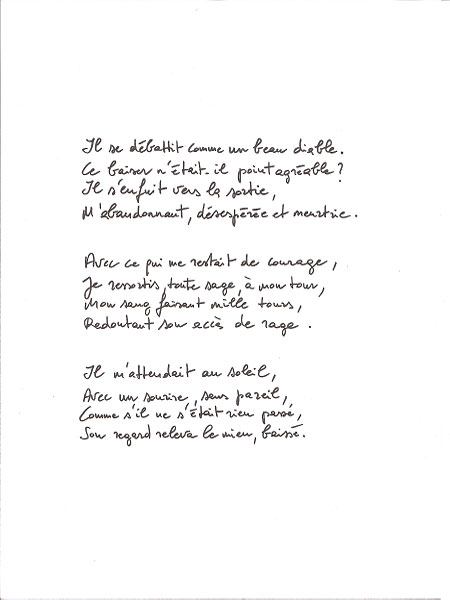 Il se débattit comme un beau diable.
Ce baiser n'était-il point agréable ?
Il s'enfuit vers la sortie,
M'abandonnant, désespérée et meurtrie.
Avec ce qui me restait de courage,
Je ressortis, toute sage, à mon tour,
Mon sang faisant mille tours,
Redoutant son accès de rage.
Il m'attendait au soleil,
Avec un sourire, sans pareil,
Comme s'il ne s'était rien passé,
Son regard releva le mien, baissé.